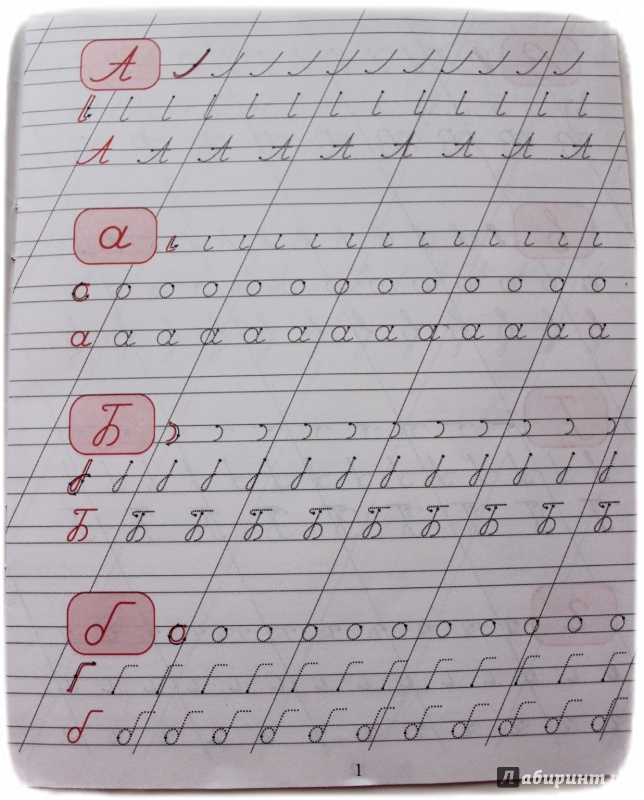 А
А А А А А А А А А
а
о о о о о о о о о о о о о
а а а а а а а а а а а а а
Б
Б Б Б Б Б Б Б Б Б Б
б о о о о о о о о о о о
б б б б б б б б б б б б
1
Лабиринт